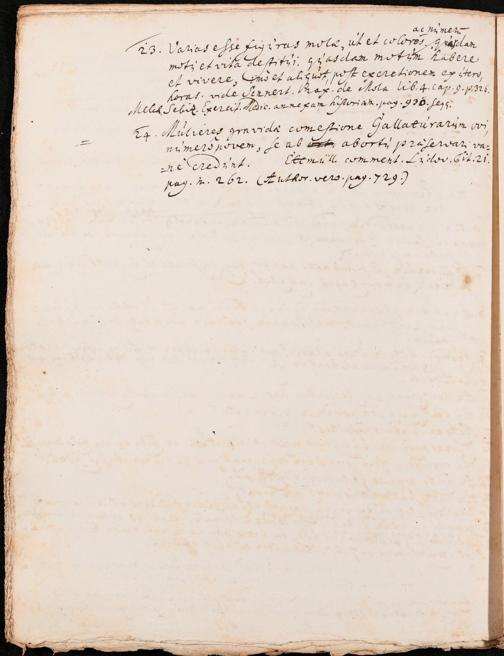 ac numerū
23. Varias esse figuras molæ, ut et colores, quasdam
motu et vita destitui. quasdam motum habere
et vivere, quin et aliquot post excretionem ex utero,
horas. vide Sennert. Prax. de Mola lib. 4. cap. 9. p. 321.
Melch. Sebiz. Exercit. Medic. annexam historiam. pag. 930. seqq.
24. Mulieres gravidæ comestione Gallaturarum ovi
numero novem, se ab abortu præservari va-
=ne credunt. Ettmüll comment. Ludov. 
pag. m. 262. (Author. vero. pag. 729.)